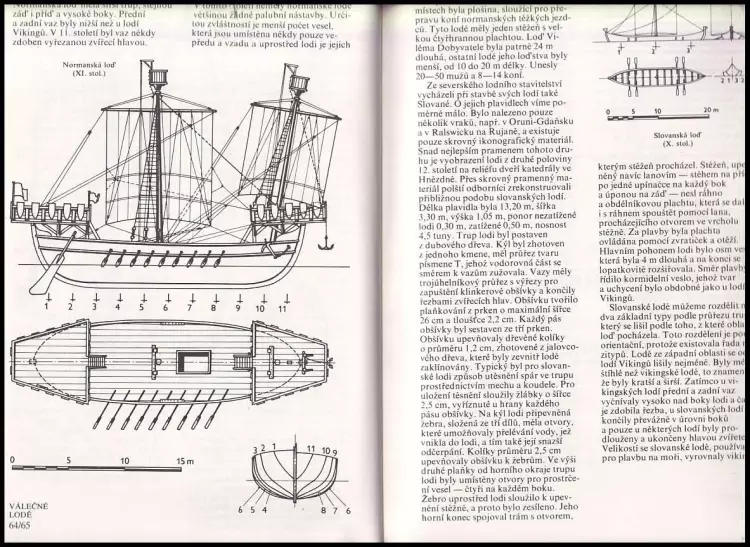 zád' i příd' a vysoké boky. Přední
a zadní vaz byly nižší než u lodí
Vikingů. V 11. století byl vaz někdy
zdoben vyřezanou zvířecí hlavou.
většinou žádné palubní nástavby. Urči-
tou zvláštností je menší počet vesel,
která jsou umístěna někdy pouze ve-
předu a vzadu a uprostřed lodi je jejich
Normanská loď
(XI. stol.)
1 2 3 4 5 6 7 8 9 10 11
0 5 10 15 m
3 2 1 11 10 9
6 5 4 8 7 6
VÁLEČNÉ
LODĚ
64/65
místech byla plošina, sloužící pro pře-
pravu koní normanských těžkých jezd-
ců. Tyto lodě měly jeden stěžeň s vel-
kou čtyřhrannou plachtou. Loď Vi-
léma Dobyvatele byla patrně 24 m
dlouhá, ostatní lodě jeho loďstva byly
menší, od 10 do 20 m délky. Unesly
20—50 mužů a 8—14 koní.
Ze severského lodního stavitelství
vycházeli při stavbě svých lodí také
Slované. O jejich plavidlech víme po-
měrně málo. Bylo nalezeno pouze
několik vraků, např. v Oruni-Gdaňsku
a v Ralswicku na Rujaně, a existuje
pouze skrovný ikonografický materiál.
Snad nejlepším pramenem tohoto dru-
hu je vyobrazení lodi z druhé poloviny
12. století na reliéfu dveří katedrály ve
Hnězdně. Přes skrovný pramenný ma-
teriál polští odborníci zrekonstruovali
přibližnou podobu slovanských lodí.
Délka plavidla byla 13,20 m, šířka
3,30 m, výška 1,05 m, ponor nezatížené
lodi 0,30 m, zatížené 0,50 m, nosnost
4,5 tuny. Trup lodi byl postaven
z dubového dřeva. Kýl byl zhotoven
z jednoho kmene, měl průřez tvaru
písmene T, jehož vodorovná část se
směrem k vazům zužovala. Vazy měly
trojúhelníkový průřez s výřezy pro
zapuštění klinkerové obšívky a končily
řezbami zvířecích hlav. Obšívku tvořilo
plaňkování z prken o maximální šířce
26 cm a tloušťce 2,2 cm. Každý pás
obšívky byl sestaven ze tří prken.
Obšívku upevňovaly dřevěné kolíky
o průměru 1,2 cm, zhotovené z jalovco-
vého dřeva, které byly zevnitř lodě
zaklínovány. Typický byl pro slovan-
ské lodi způsob utěsnění spár ve trupu
prostřednictvím mechu a koudele. Pro
uložení těsnění sloužily žlábky o šířce
2,5 cm, vyříznuté u hrany každého
pásu obšívky. Na kýl lodi připevněná
žebra, složená ze tří dílů, měla otvory,
které umožňovaly přelévání vody, jež
vnikla do lodi, a tím také její snazší
odčerpání. Kolíky průměru 2,5 cm
upevňovaly obšívku k žebrům. Ve výši
druhé plaňky od horního okraje trupu
lodi byly umístěny otvory pro prostrče-
ní vesel — čtyři na každém boku.
Žebro uprostřed lodi sloužilo k upev-
nění stěžně, a proto bylo zesíleno. Jeho
horní konec spojoval trám s otvorem,
1 2 3
2 1 3 2
0 5 10 20 m
Slovanská loď
(X. stol.)
kterým stěžeň procházel. Stěžeň,
něný navíc lanovím — stěhem na
po jedné upínačce na každý bok
a úponou na zád' — nesl ráhno
a obdélníkovou plachtu, která se
i s ráhnem spouštět pomocí lana,
procházejícího otvorem ve vrcholu
stěžně. Za plavby byla plachta
ovládána pomocí zvratiček a otěží.
Hlavním pohonem lodi bylo osm
která byla 4 m dlouhá a na konci se
lopatkovitě rozšiřovala. Směr
řídilo kormidelní veslo, jehož tvar
a uchycení bylo obdobné jako u
Vikingů.
Slovanské lodě můžeme rozdělit
dva základní typy podle průřezu
který se lišil podle toho, z které
loď pocházela. Toto rozdělení je
orientační, protože existovala řada
zitypů. Lodě ze západní oblasti se
lodí Vikingů lišily nejméně. Byly
štíhlé než vikingské lodě, to znamen
že byly kratší a širší. Zatímco u vi-
kingských lodí přední a zadní vaz
vyčnívaly vysoko nad boky lodi a
je zdobila řezba, u slovanských lodí
končily převážně v úrovni boků
a pouze u některých lodí byly pro-
dlouženy a ukončeny hlavou
Velikostí se slovanské lodě,
pro plavbu na moři, vyrovnaly